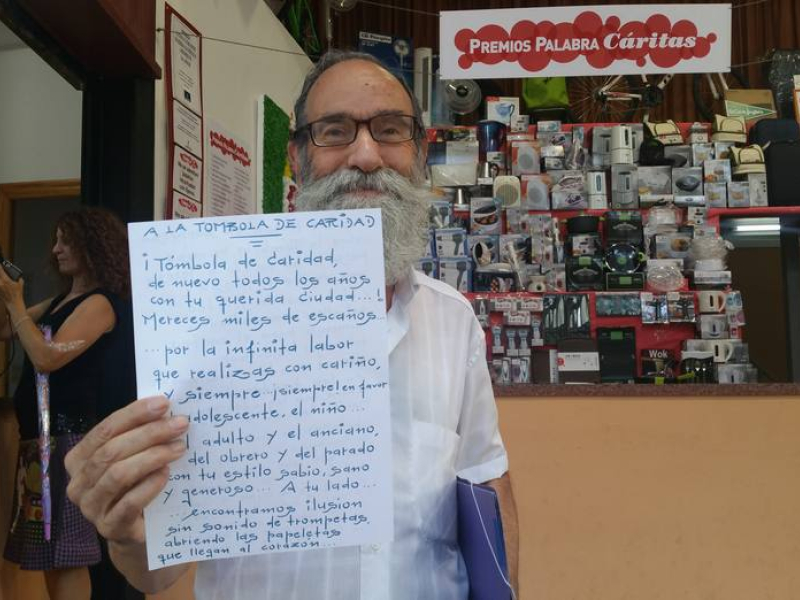 PREMIOS PALABRA Cáritas
A LA TOMBOLA DE CARIDAD
¡Tómbola de Caridad,
de nuevo todos los años
con tu querida ciudad...!
Mereces miles de escaños...
...por la infinita labor
que realizas con cariño,
y siempre...¡siempre! en favor
adolescente, el niño...
adulto y el anciano,
del obrero y del parado
con tu estilo sabio, sano
y generoso... A tu lado...
...encontramos ilusion
sin sonido de trompetas,
abriendo las papeletas
que llegan al corazón...
Wok